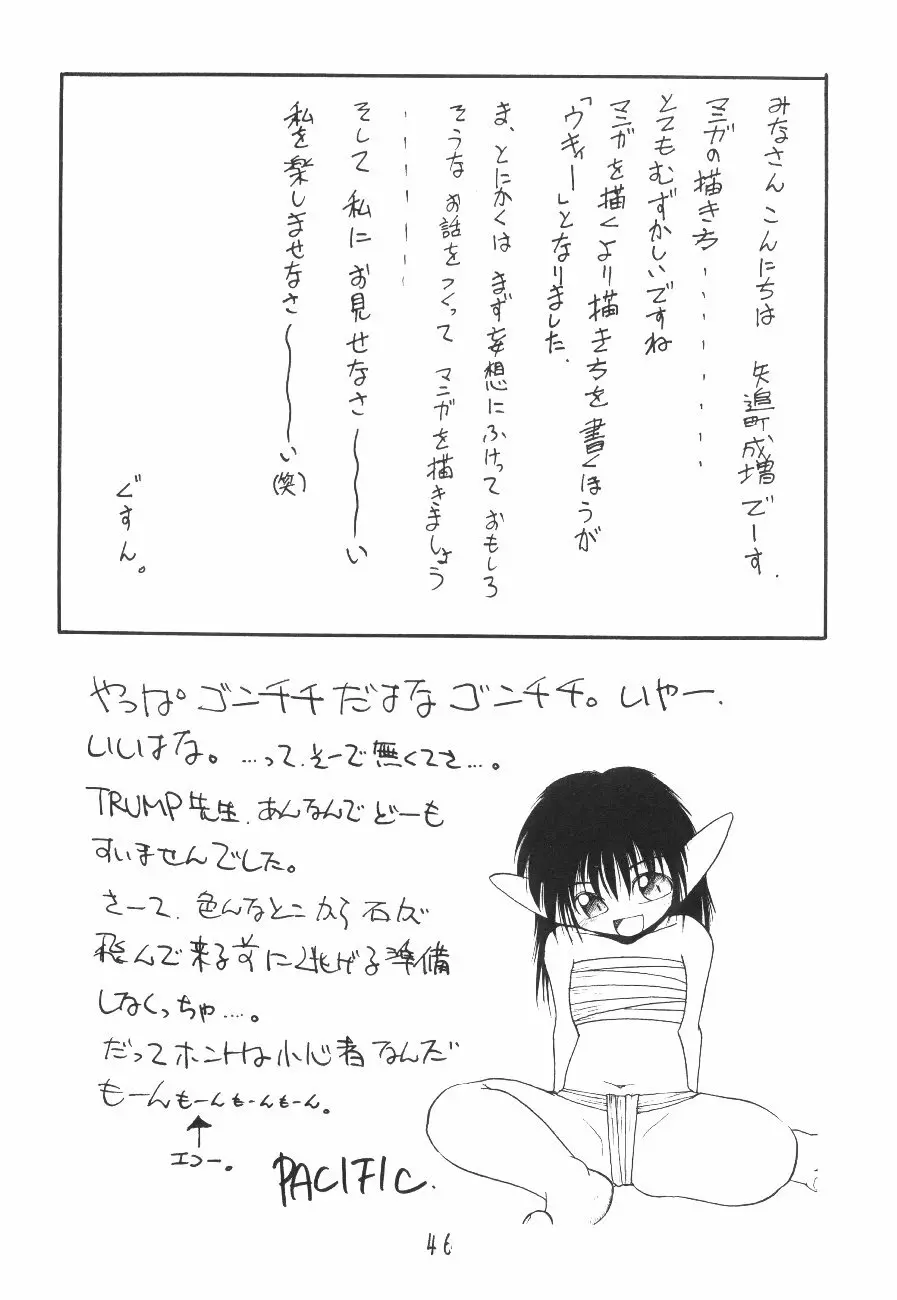 みなさん こんにちは 矢追町成増でーす.
マンガの描き方‥‥‥‥
とてもむずかしいですね
マンガを描くより描き方を書くほうが
「ウキィー」となりました.
ま、とにかくは まず妄想にふけって おもしろ
そうな お話をつくって マンガを描きましょう
‥‥‥‥
そして 私に お見せなさ〜〜い
私を楽しませなさ〜〜い(笑)
ぐすん。
やっぱ。ゴンチチだはな ゴンチチ。いやー.
いいはな。…って、そーで無くてさ…。
TRUMP先生、あんなんで どーも
すいませんでした。
さーて、色んなとこから石が
飛んで来る前に逃げる準備
しなくっちゃ…。
だってホントは小心者なんだ
もーんもーんもーんもーん。
↑
エコー。
PACIFIC.
46